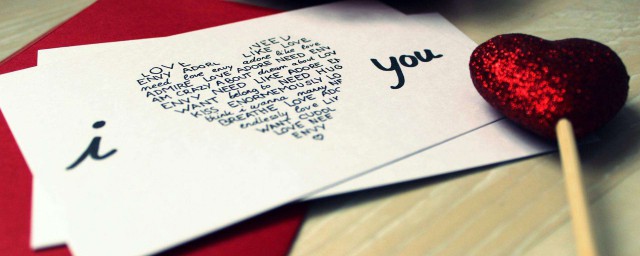 i
NEED
LOVE LIKE LOVE
ENVY ADORE adore like love
need love envy ADORE NEED ENVY
ADMIRE LOVE ADORE NEED
AM CRAZY ABOUT dream about LOV
ENVY NEED LIKE ADORE
WANT belong to NEED HUG
KISS ENORMEMOUSLY
think i wanna marry
BREATHE LOVE ADO
endlessly love LIV
WANT CUDDL
LOVE NEE
ENVY
you